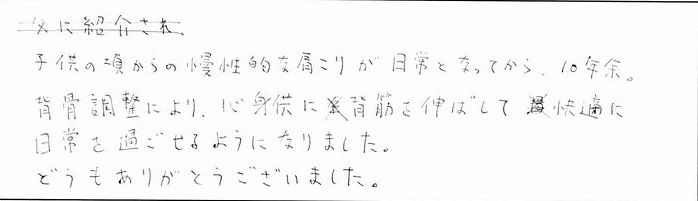 父に紹介され、
子供の頃からの慢性的な肩こりが日常となってから、10年余。
背骨調整により、心身供に背筋を伸ばして快適に
日常を過ごせるようになりました。
どうもありがとうございました。